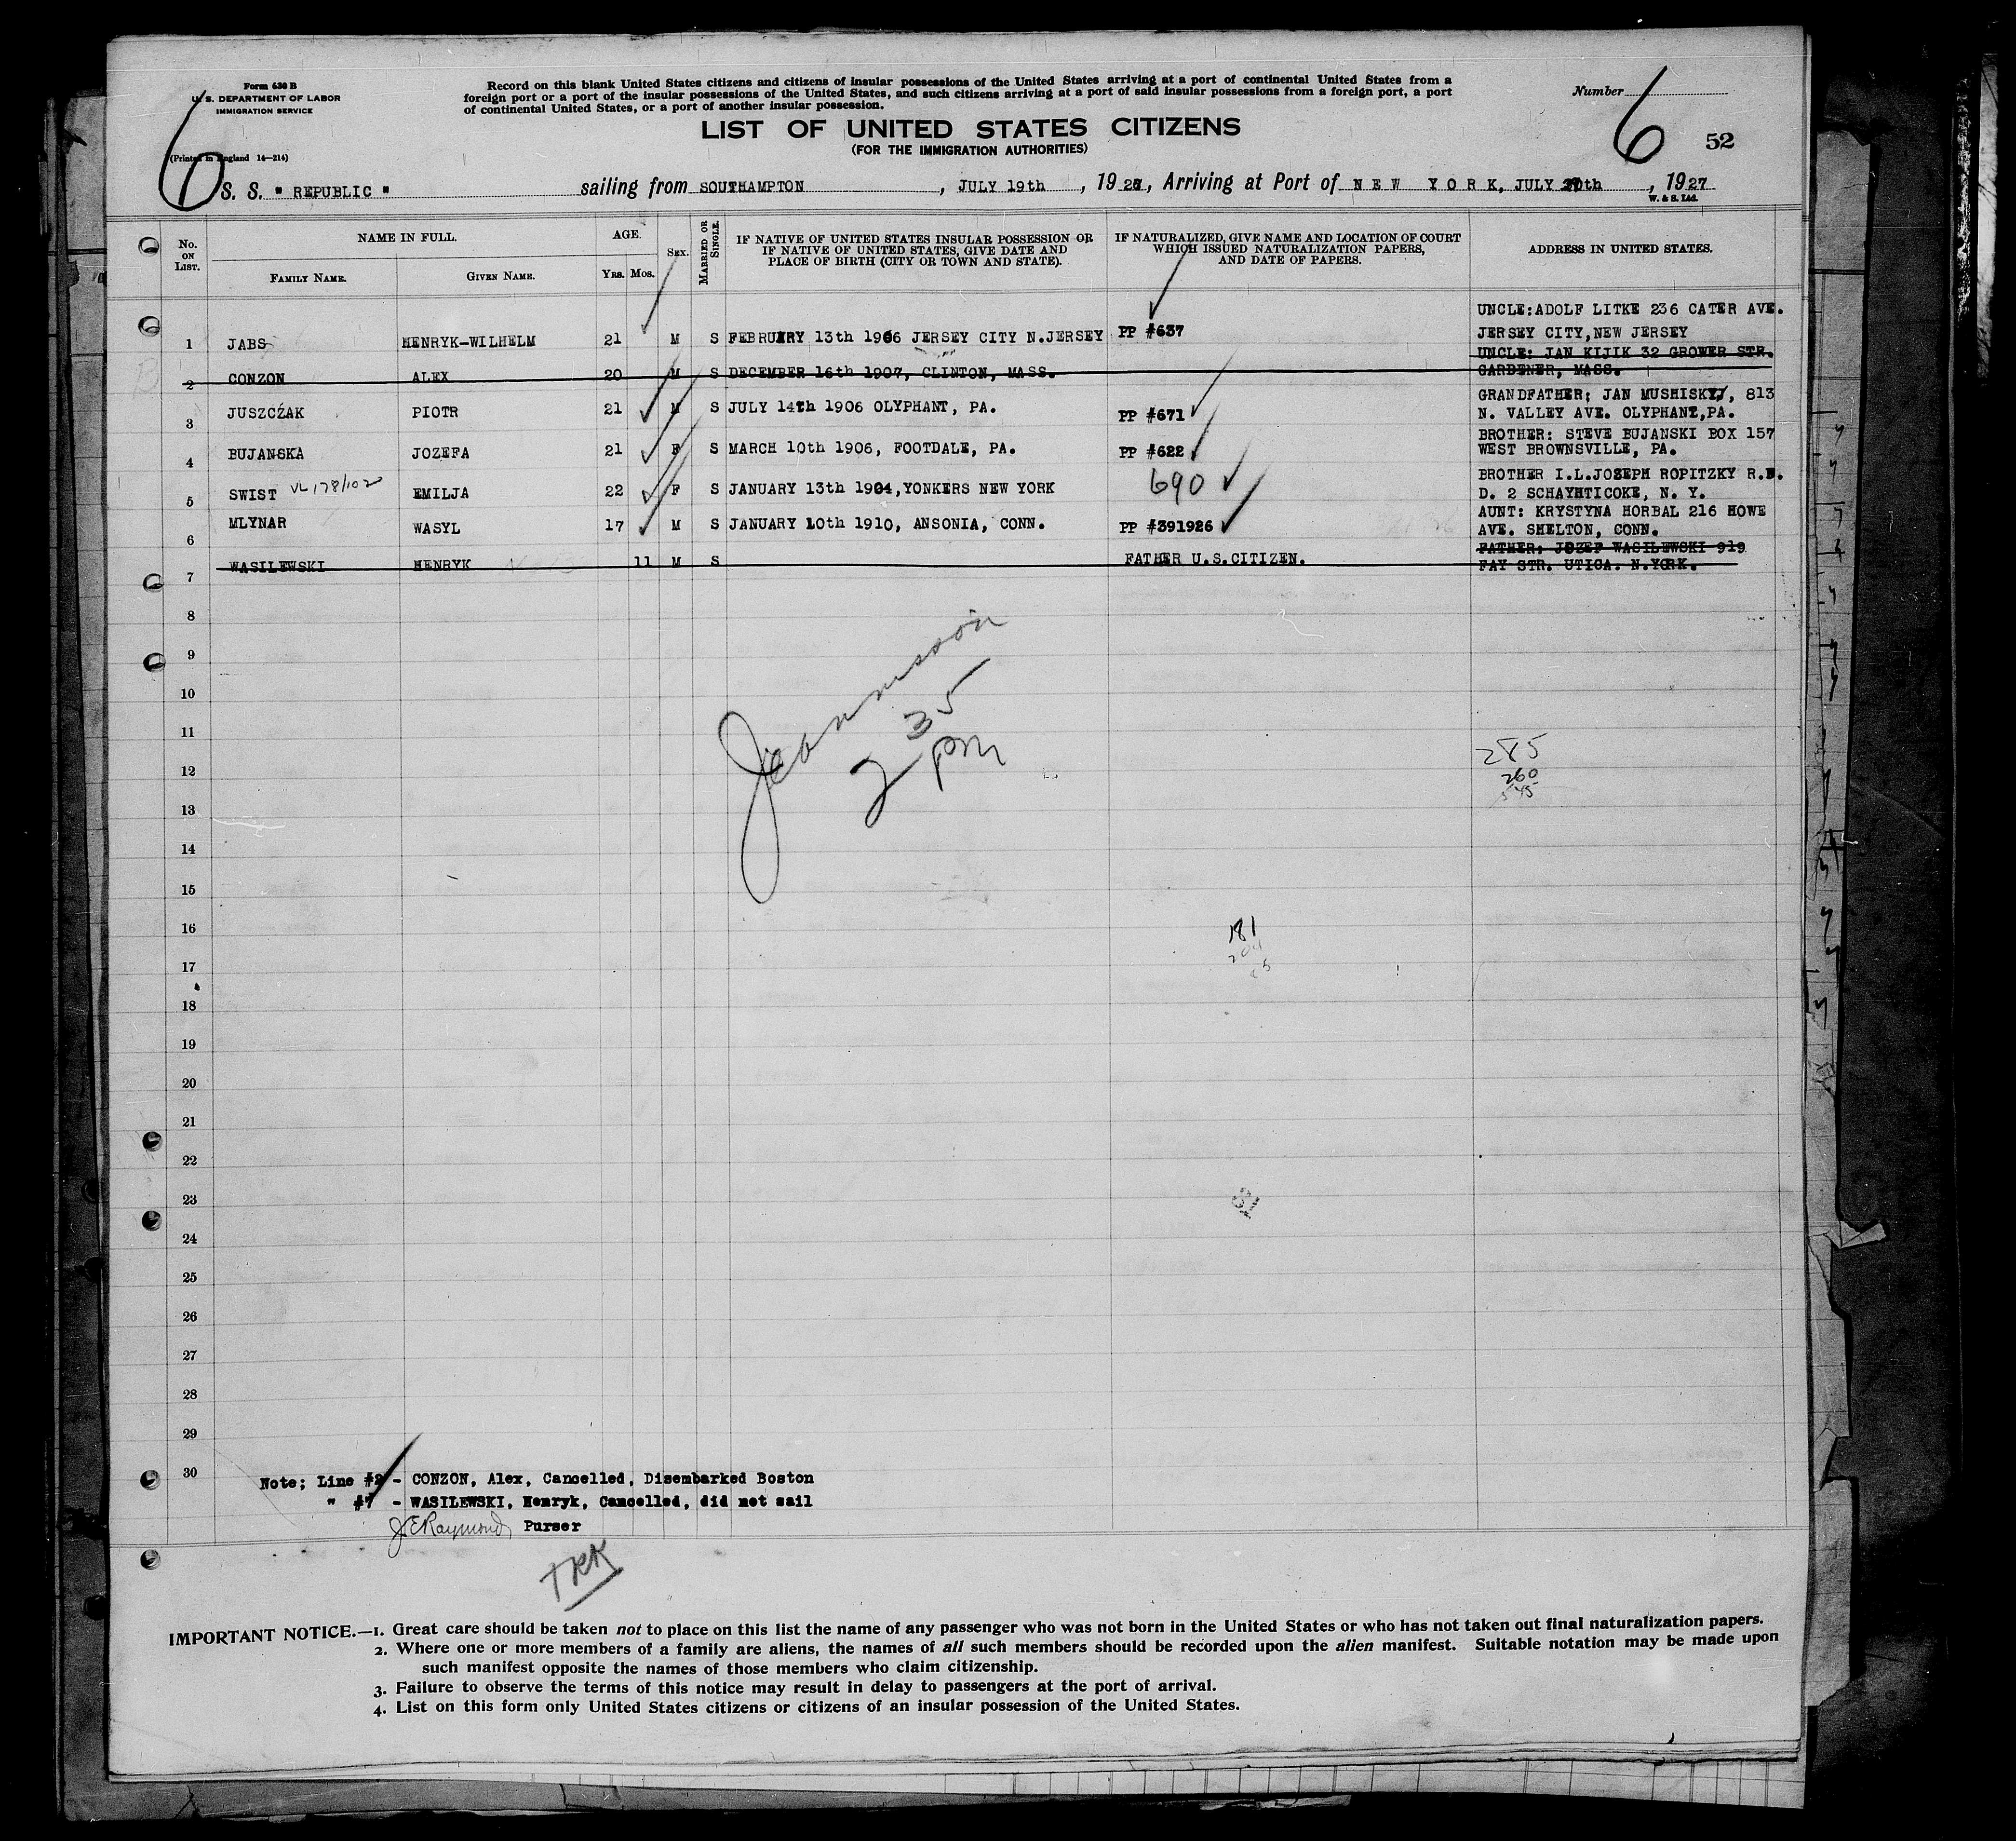 Form 630 B
U. S. DEPARTMENT OF LABOR
IMMIGRATION SERVICE
(Printed in England 14—214)
Record on this blank United States citizens and citizens of insular possessions of the United States arriving at a port of continental United States from a
foreign port or a port of the insular possessions of the United States, and such citizens arriving at a port of said insular possessions from a foreign port, a port
of continental United States, or a port of another insular possession.
Number
6
6
52
LIST OF UNITED STATES CITIZENS
(FOR THE IMMIGRATION AUTHORITIES)
S. S. " REPUBLIC " sailing from SOUTHAMPTON, JULY 19th, 1927, Arriving at Port of NEW YORK, JULY th, 1927
W. & S. Ltd.
No. ON LIST.
NAME IN FULL.
FAMILY NAME.
GIVEN NAME.
AGE.
YRS. MOS.
SEX.
MARRIED OR SINGLE.
IF NATIVE OF UNITED STATES INSULAR POSSESSION OR
IF NATIVE OF UNITED STATES, GIVE DATE AND
PLACE OF BIRTH (CITY OR TOWN AND STATE).
IF NATURALIZED, GIVE NAME AND LOCATION OF COURT
WHICH ISSUED NATURALIZATION PAPERS,
AND DATE OF PAPERS.
ADDRESS IN UNITED STATES.
UNCLE:ADOLF LITKE 236 CATER AVE.
1 JABS HENRYK-WILHELM 21 M S FEBRUARY 13th 1906 JERSEY CITY N.JERSEY PP #637 JERSEY CITY,NEW JERSEY
UNCLE: JAN KIJIK 32 GROWER STR.
2 CONZON ALEX 20 M S DECEMBER 16th 1907, CLINTON, MASS. GARDENER, MASS.
GRANDFATHER; JAN MUSHISKY, 813
3 JUSZCŹAK PIOTR 21 M S JULY 14th 1906 OLYPHANT, PA. PP #671 N. VALLEY AVE. OLYPHANT,PA.
BROTHER: STEVE BUJANSKI BOX 157
4 BUJANSKA JOZEFA 21 F S MARCH 10th 1906, FOOTDALE, PA. PP #622 WEST BROWNSVILLE, PA.
BROTHER I.L.JOSEPH ROPITZKY R.D.
5 SWIST VL 178/102 EMILJA 22 F S JANUARY 13th 1904,YONKERS NEW YORK 690 D. 2 SCHAYHTICOKE, N. Y.
AUNT: KRYSTYNA HORBAL 216 HOWE
6 MLYNAR WASYL 17 M S JANUARY 10th 1910, ANSONIA, CONN. PP #391926 AVE. SHELTON, CONN.
FATHER: JOZEF WASILEWSKI 919
7 WASILEWSKI HENRYK 11 M S FATHER U.S.CITIZEN. FAY STR. UTICA. N.YORK.
8
9
10
11
12
13
14
15
16
17
18
19
20
21
22
23
24
25
26
27
28
29
30
2 35
pm
285
260
545
181
Note; Line #2 - CONZON, Alex, Cancelled, Disembarked Boston
" #7 - WASILEWSKI, Henryk, Cancelled, did not sail
J.E.Raymond, Purser
IMPORTANT NOTICE.—1. Great care should be taken not to place on this list the name of any passenger who was not born in the United States or who has not taken out final naturalization papers.
2. Where one or more members of a family are aliens, the names of all such members should be recorded upon the alien manifest. Suitable notation may be made upon
such manifest opposite the names of those members who claim citizenship.
3. Failure to observe the terms of this notice may result in delay to passengers at the port of arrival.
4. List on this form only United States citizens or citizens of an insular possession of the United States.